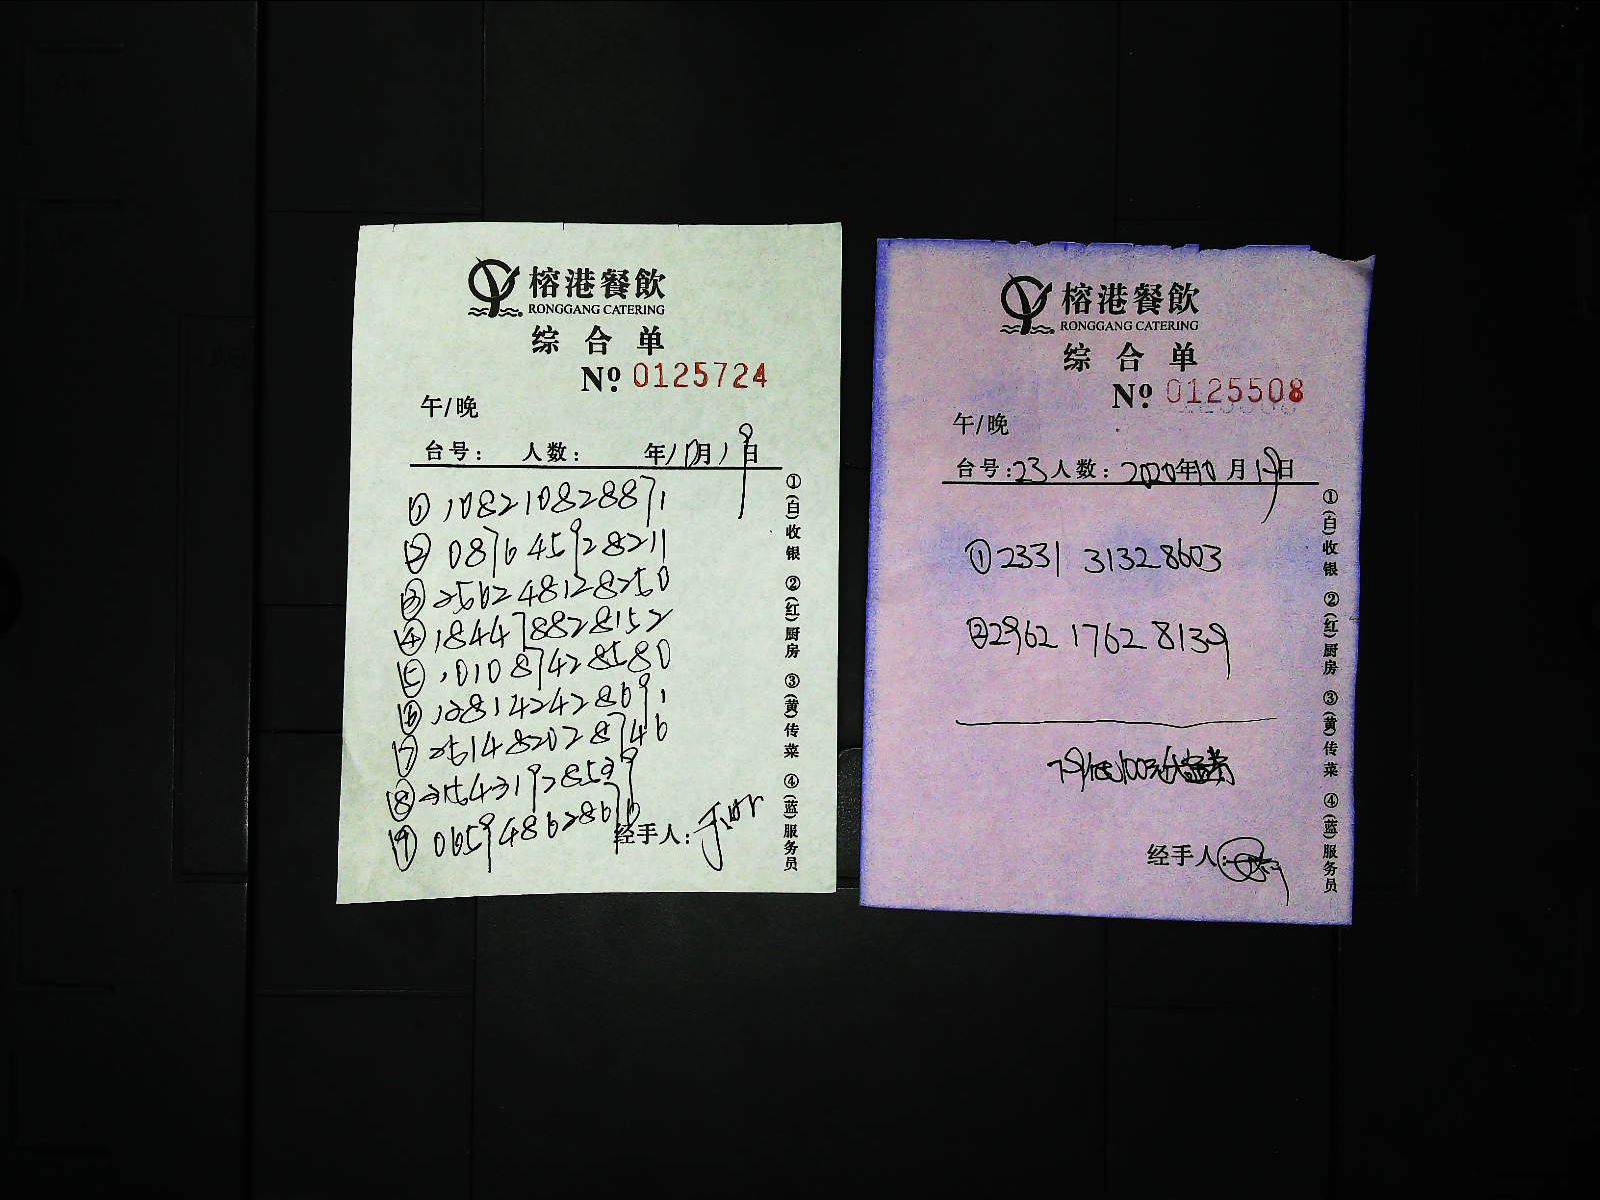 榕港餐飲
RONGGANG CATERING
综合单
№ 0125724
午/晚
台号: 人数: 年10月19日
① 108210828871
② 087645928211
③ 256248128250
④ 184478828152
⑤ 101087428580
⑥ 128142428691
⑦ 251482028746
⑨ 065948628676
经手人:
①(白)收银 ②(红)厨房 ③(黄)传菜 ④(蓝)服务员
榕港餐飲
RONGGANG CATERING
综合单
№ 0125508
午/晚
台号:23 人数: 2020年10月19日
① 2331 31328603
② 2962 1762 8139
经手人:
①(白)收银 ②(红)厨房 ③(黄)传菜 ④(蓝)服务员